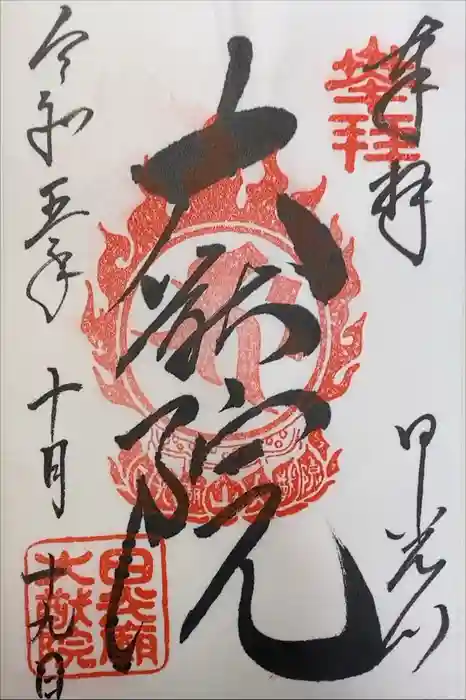 奉拝
日光山
大猷院
令和五年
十月
十九日
奉拝
大猷院